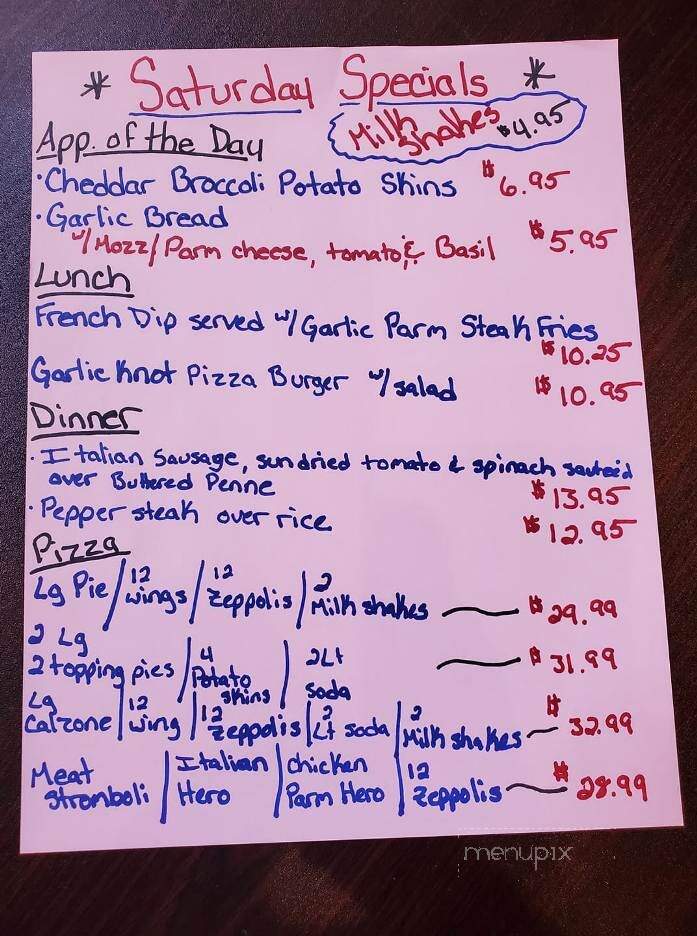 * Saturday Specials *
Milk Shakes $4.95
App. of the Day
· Cheddar Broccoli Potato Skins $6.95
· Garlic Bread
w/Mozz/Parm cheese, tomato & Basil $5.95
Lunch
French Dip served w/ Garlic Parm Steak Fries
$10.25
Garlic Knot Pizza Burger w/ salad $10.95
Dinner
· Italian Sausage, sundried tomato & spinach sauteéd
over Buttered Penne $13.95
· Pepper steak over rice $12.95
Pizza
Lg Pie / 12 wings / 12 Zeppolis / 2 Milk shakes — $29.99
2 Lg
2 topping pies / 4 Potato skins / 2Lt soda — $31.99
Lg Calzone / 12 wing / 12 Zeppolis / 2 Lt soda / 2 Milk shakes — $32.99
Meat Stromboli / Italian Hero / Chicken Parm Hero / 12 Zeppolis — $28.99
menupix